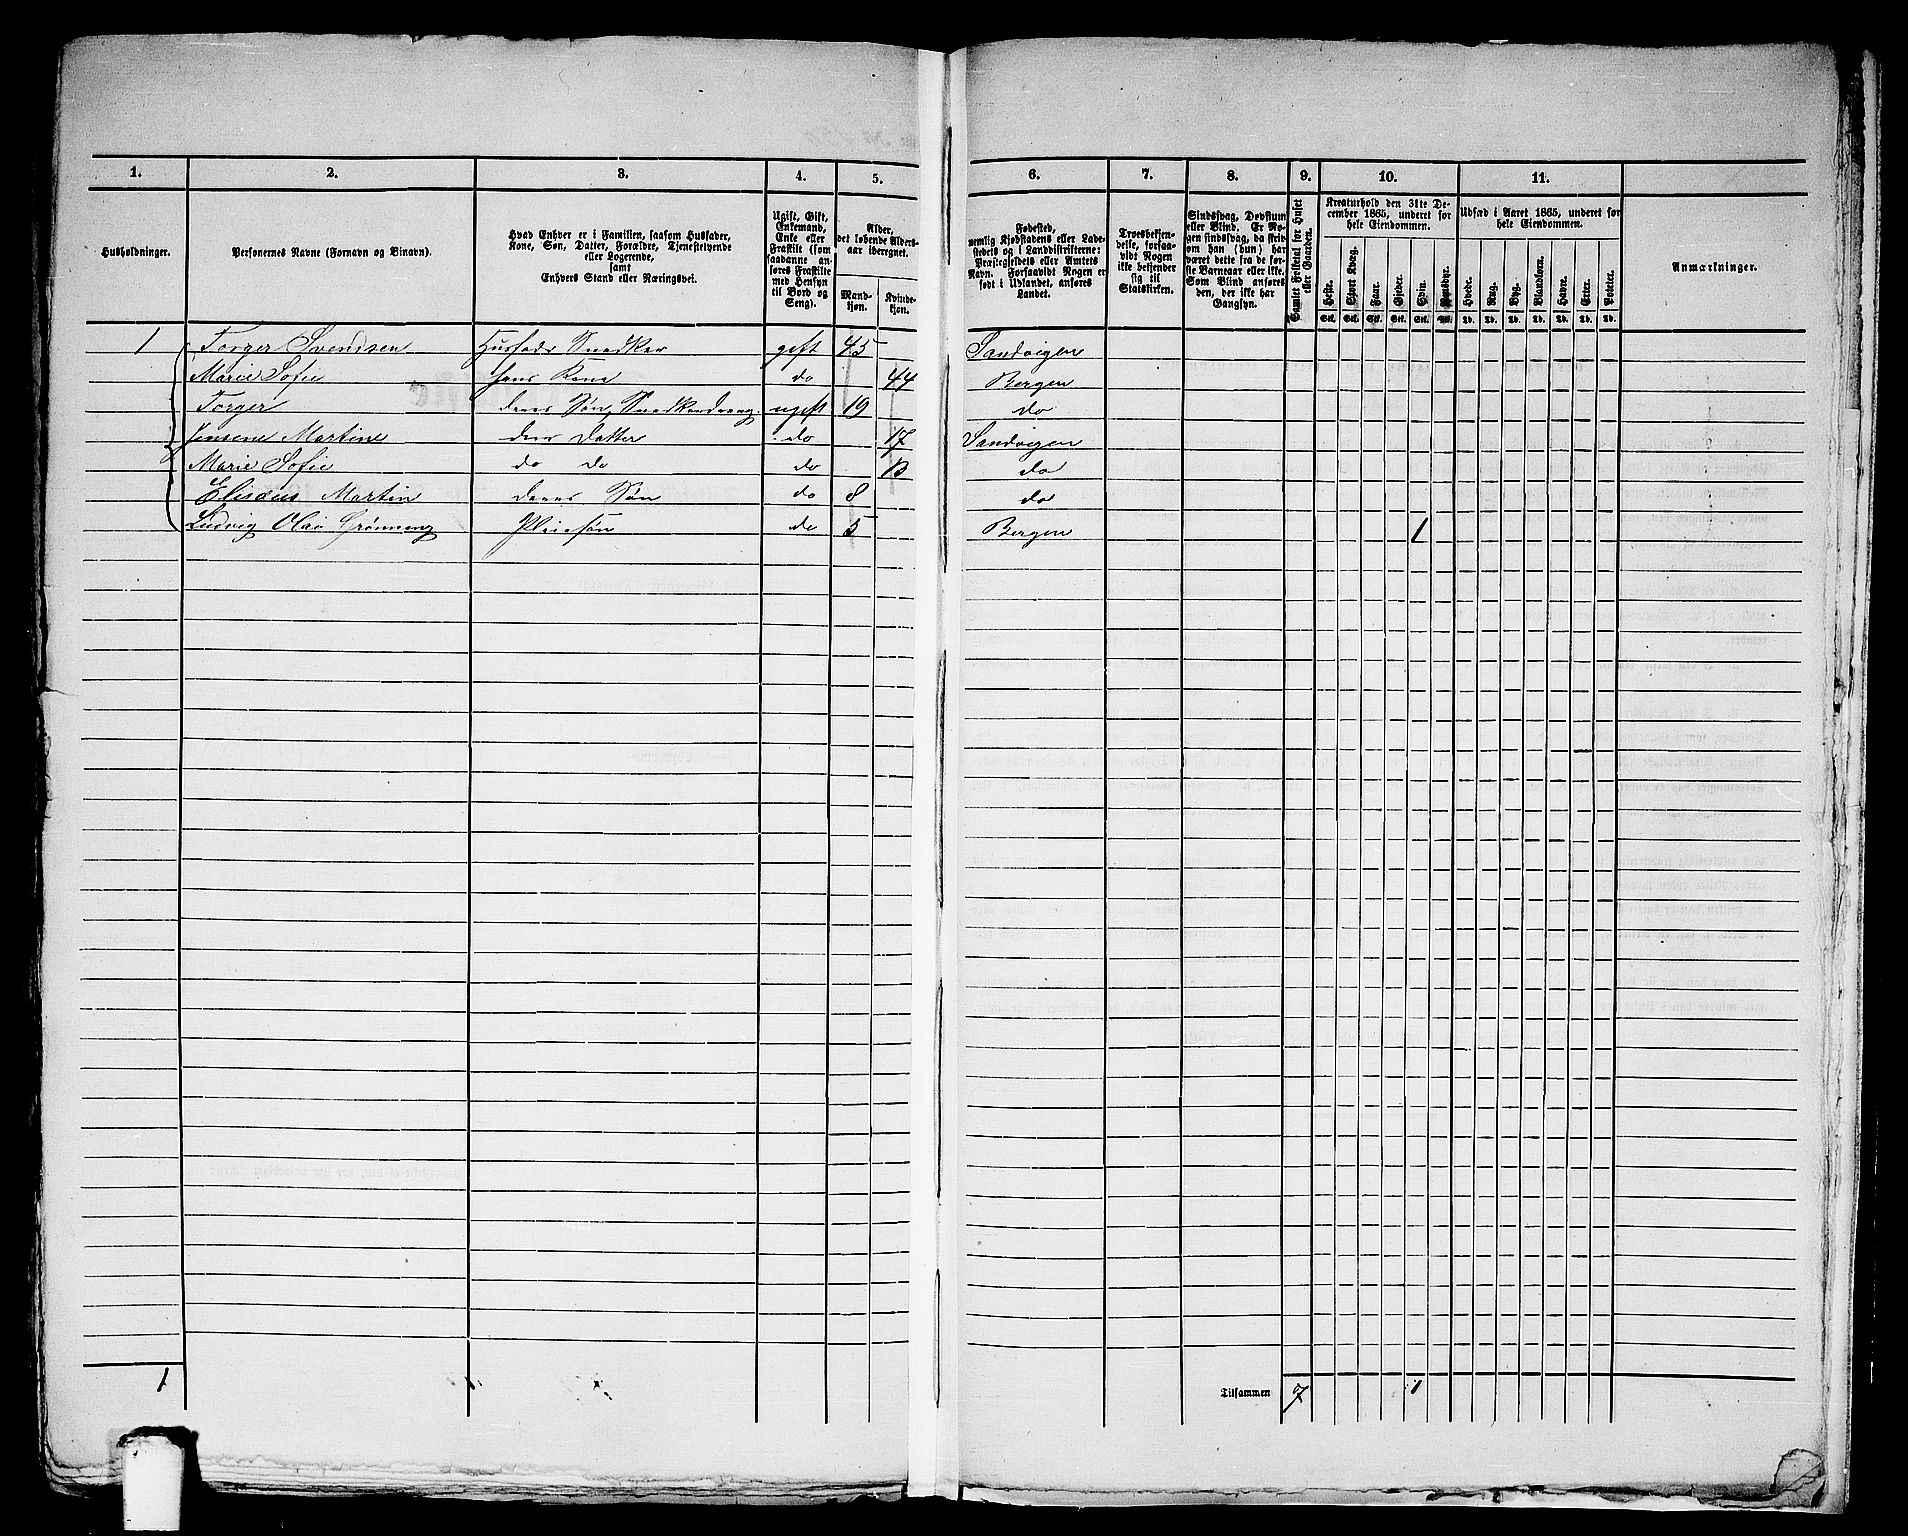 1. 2. 3. 4. 5. 6. 7. 8. 9. 10. 11.
Husholdninger.
Personernes Navne (Fornavn og Binavn).
Hvad Enhver er i Familien, saasom Husfader,
Kone, Søn, Datter, Forældre, Tjenestetyende
eller Logerende,
samt
Enhvers Stand eller Næringsvei.
Ugift, Gift,
Enkemand,
Enke eller
Fraskilt (som
saadanne an-
føres Fraskilte
med Hensyn
til Bord og
Seng).
Alder,
det løbende Alders-
aar iberegnet.
Mand-
kjøn.
Kvinde-
kjøn.
Fødested,
nemlig Kjøbstadens eller Lade-
stedets og i Landdistrikterne:
Præstegjeldets eller Amtets
Navn. Forsaavidt Nogen er
født i Udlandet, anføres
Landet.
Troesbekjen-
delse, forsaa-
vidt Nogen
ikke bekjender
sig til
Statskirken.
Sindssvag, Døvstum
eller Blind. Er No-
gen sindssvag, da skriv
om han (hun) har
været dette fra de før-
ste Barneaar eller ikke.
Som Blind anføres
den, der ikke har
Gangsyn.
Samlet Folketal for Huset
eller Gaarden.
Kreaturhold den 31te De-
cember 1865, underet for
hele Eiendommen.
Heste. Stort Kvæg. Faar. Gjeder. Svin. Rensdyr.
Stk. Stk. Stk. Stk. Stk. Stk.
Udsæd i Aaret 1865, underet for
hele Eiendommen.
Hvede. Rug. Byg. Blandkorn. Havre. Erter. Poteter.
Td. Td. Td. Td. Td. Td. Td.
Anmærkninger.
1 Torger Svendsen Husfader Snedker gift 45 Sandvigen
Marie Sofie hans Kone do 44 Bergen
Torger deres Søn, Snedkerdreng ugift 19 do
Jensene Martine deres Datter do 17 Sandvigen
Marie Sofie do do do 13 do
Elisæus Martin deres Søn do 8 do
Ludvig Olai Grønneng Pleiesøn do 5 Bergen 1
1 Tilsammen 7 1